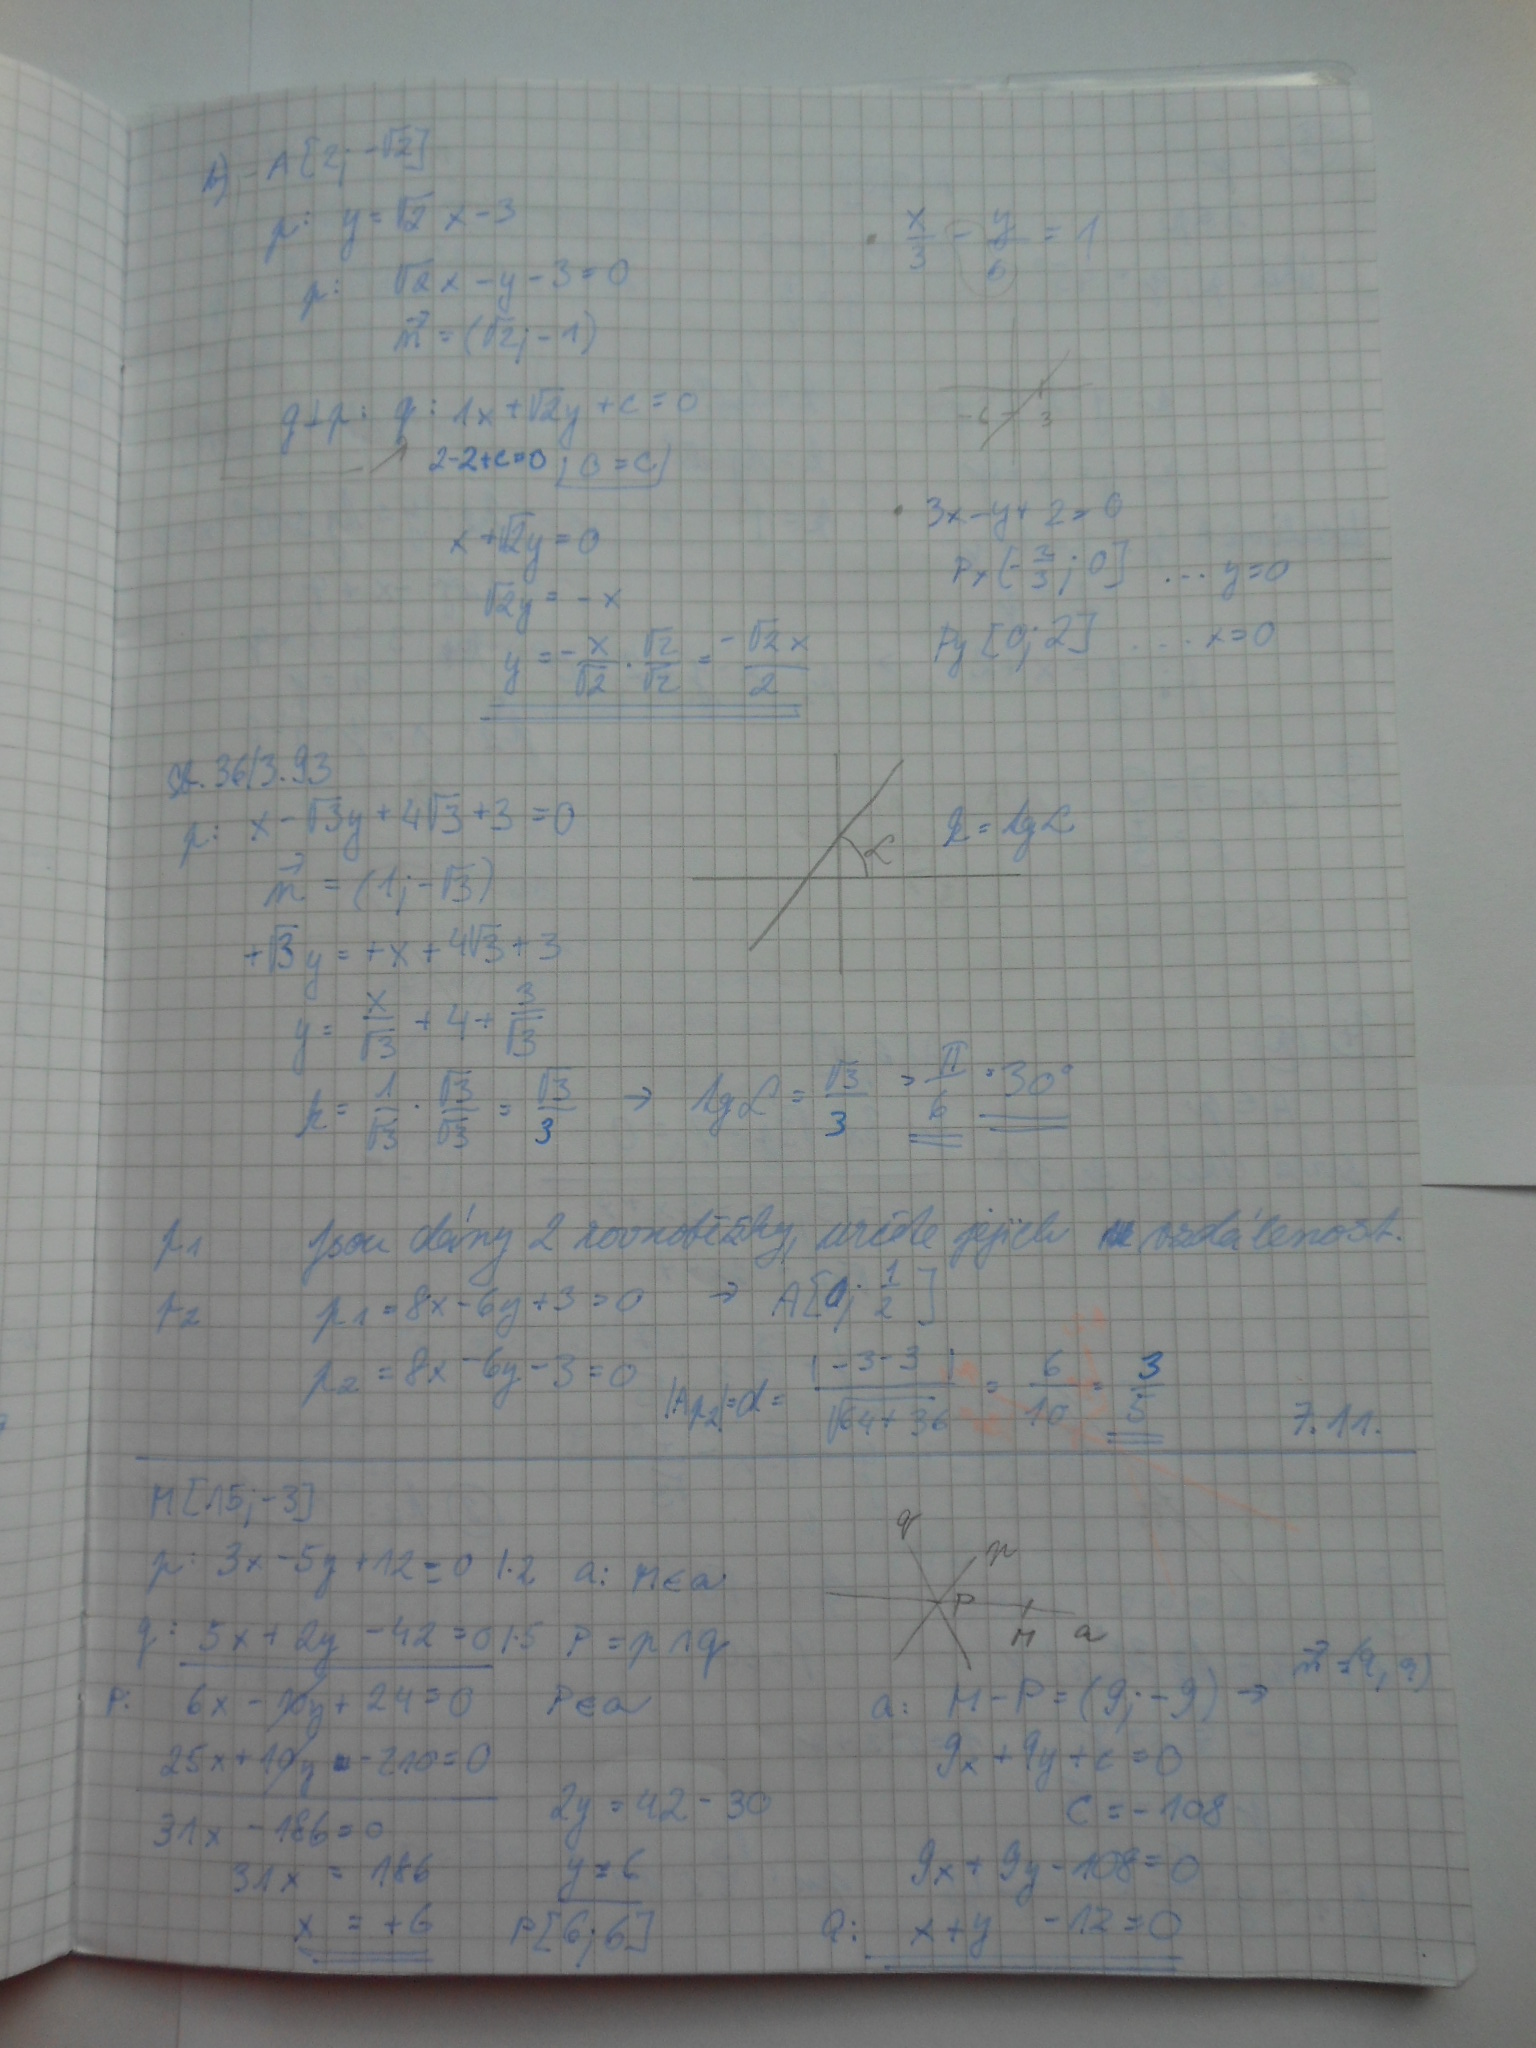 b) A[2; -√2]
p: y = √2 x - 3
p: √2 x - y - 3 = 0
n⃗ = (√2; -1)
q⊥p: q: 1x + √2y + c = 0
2-2+c=0 ; 0 = c
x + √2y = 0
√2y = -x
y = -x/√2 · √2/√2 = -√2x/2
x/3 - y/6 = 1
-6 3
3x - y + 2 = 0
Px[-2/3; 0] ... y=0
Py[0; 2] .... x=0
36/3.93
p: x - √3y + 4√3 + 3 = 0
n⃗ = (1; -√3)
+√3y = +x + 4√3 + 3
y = x/√3 + 4 + 3/√3
k = 1/√3 · √3/√3 = √3/3 → tg α = √3/3 = π/6 = 30°
α k = tg α
p1 Jsou dány 2 rovnoběžky, určete jejich vzdálenost.
p2 p1 = 8x - 6y + 3 = 0 → A[0; 1/2]
p2 = 8x - 6y - 3 = 0 |Ap2| = d = |-3-3|/√64+36 = 6/10 = 3/5
7.11.
M[15; -3]
p: 3x - 5y + 12 = 0 |·2 a: M∈a
q: 5x + 2y - 42 = 0 |·5 P = p∩q
P: 6x - 10y + 24 = 0 P∈a
25x + 10y - 210 = 0
31x - 186 = 0
31x = 186
x = +6
2y = 42 - 30
y = 6
P[6; 6]
q p P M a
a: M - P = (9; -9) → n⃗ = (9, 9)
9x + 9y + c = 0
c = -108
9x + 9y - 108 = 0
a: x + y - 12 = 0